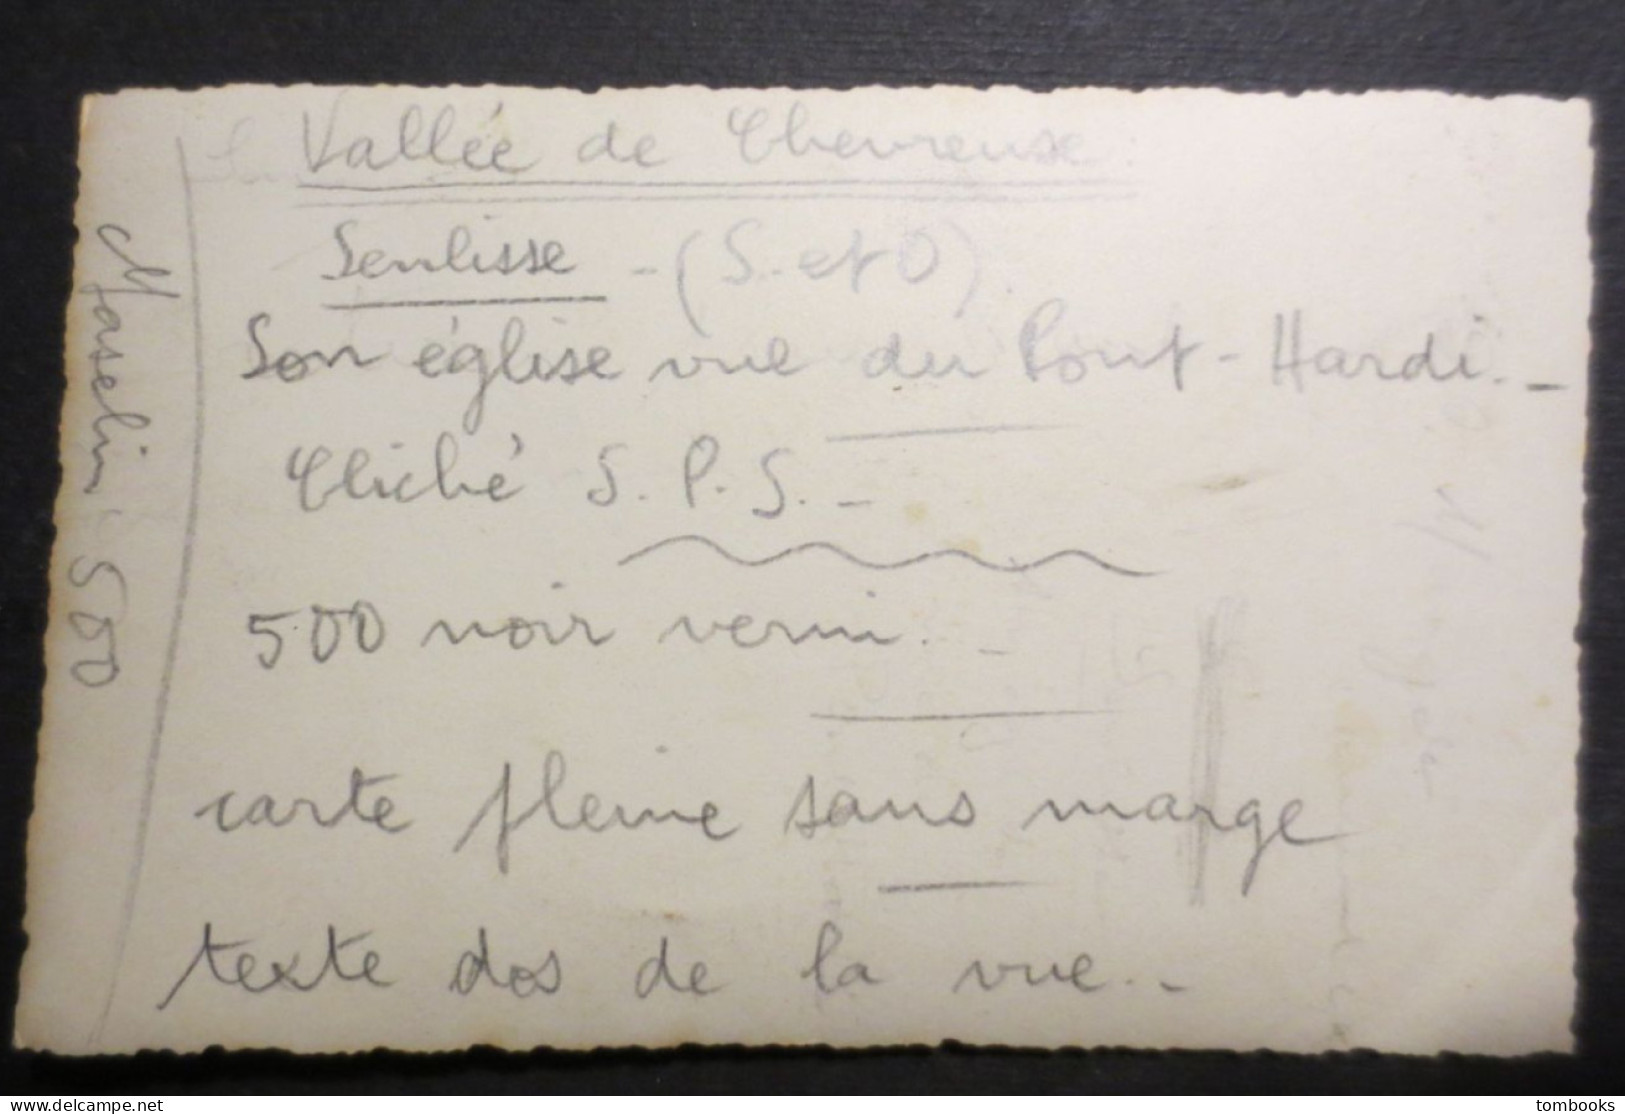 Vallée de Chevreuse
Senlisse - (S. et O)
Son église vue du Pont-Hardi. -
Cliché S. P. S. -
500 noir verni. -
carte pleine sans marge
texte dos de la vue. -
Maselin 500
delcampe.net
tombooks